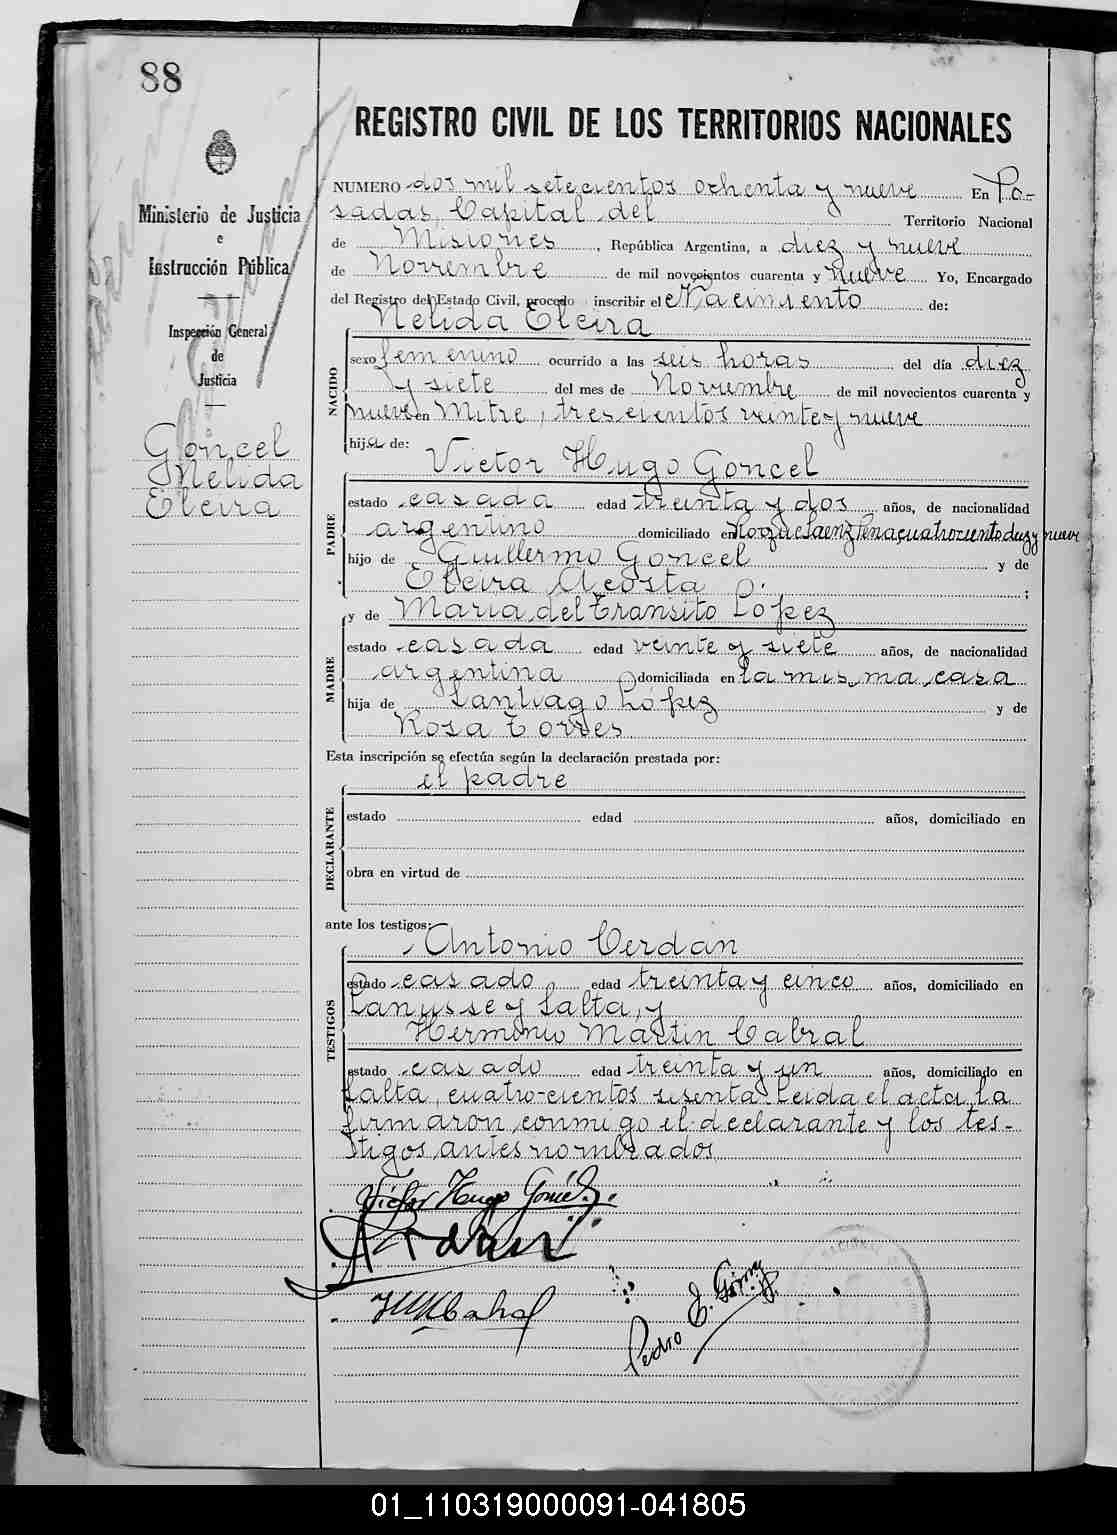 88
REGISTRO CIVIL DE LOS TERRITORIOS NACIONALES
Ministerio de Justicia
e
Instrucción Pública
Inspección General
de
Justicia
Goncel
Nelida
Elcira
NUMERO dos mil setecientos ochenta y nueve En Po-
sadas, Capital del Territorio Nacional
de Misiones, República Argentina, a diez y nueve
de Noviembre de mil novecientos cuarenta y nueve Yo, Encargado
del Registro del Estado Civil, procedo inscribir el Nacimiento de:
Nelida Elcira
NACIDO
sexo femenino ocurrido a las seis horas del día diez
y siete del mes de Noviembre de mil novecientos cuarenta y
nueve en Mitre, trescientos veinte y nueve
hija de:
Victor Hugo Goncel
PADRE
estado casada edad treinta y dos años, de nacionalidad
argentino domiciliado en Roque Saenz Pena cuatrociento diez y nueve
hijo de Guillermo Goncel y de
Elcira Acosta ;
y de Maria del Transito López
MADRE
estado casada edad veinte y siete años, de nacionalidad
argentina domiciliada en la misma casa
hija de Santiago López y de
Rosa Torres
Esta inscripción se efectúa según la declaración prestada por:
el padre
DECLARANTE
estado edad años, domiciliado en
obra en virtud de
ante los testigos:
Antonio Cerdan
TESTIGOS
estado casado edad treinta y cinco años, domiciliado en
Lanusse y Salta, y
Herminio Martin Cabral
estado casado edad treinta y un años, domiciliado en
Salta, cuatro-cientos sesenta. Leida el acta, la
firmaron conmigo el declarante y los tes-
tigos antes nombrados
Victor Hugo
Pedro J.
01_110319000091-041805